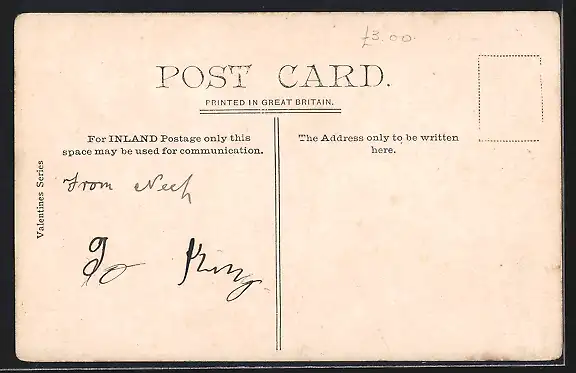 £3.00.
POST CARD.
PRINTED IN GREAT BRITAIN.
For INLAND Postage only this
space may be used for communication.
The Address only to be written
here.
Valentines Series
From
To King